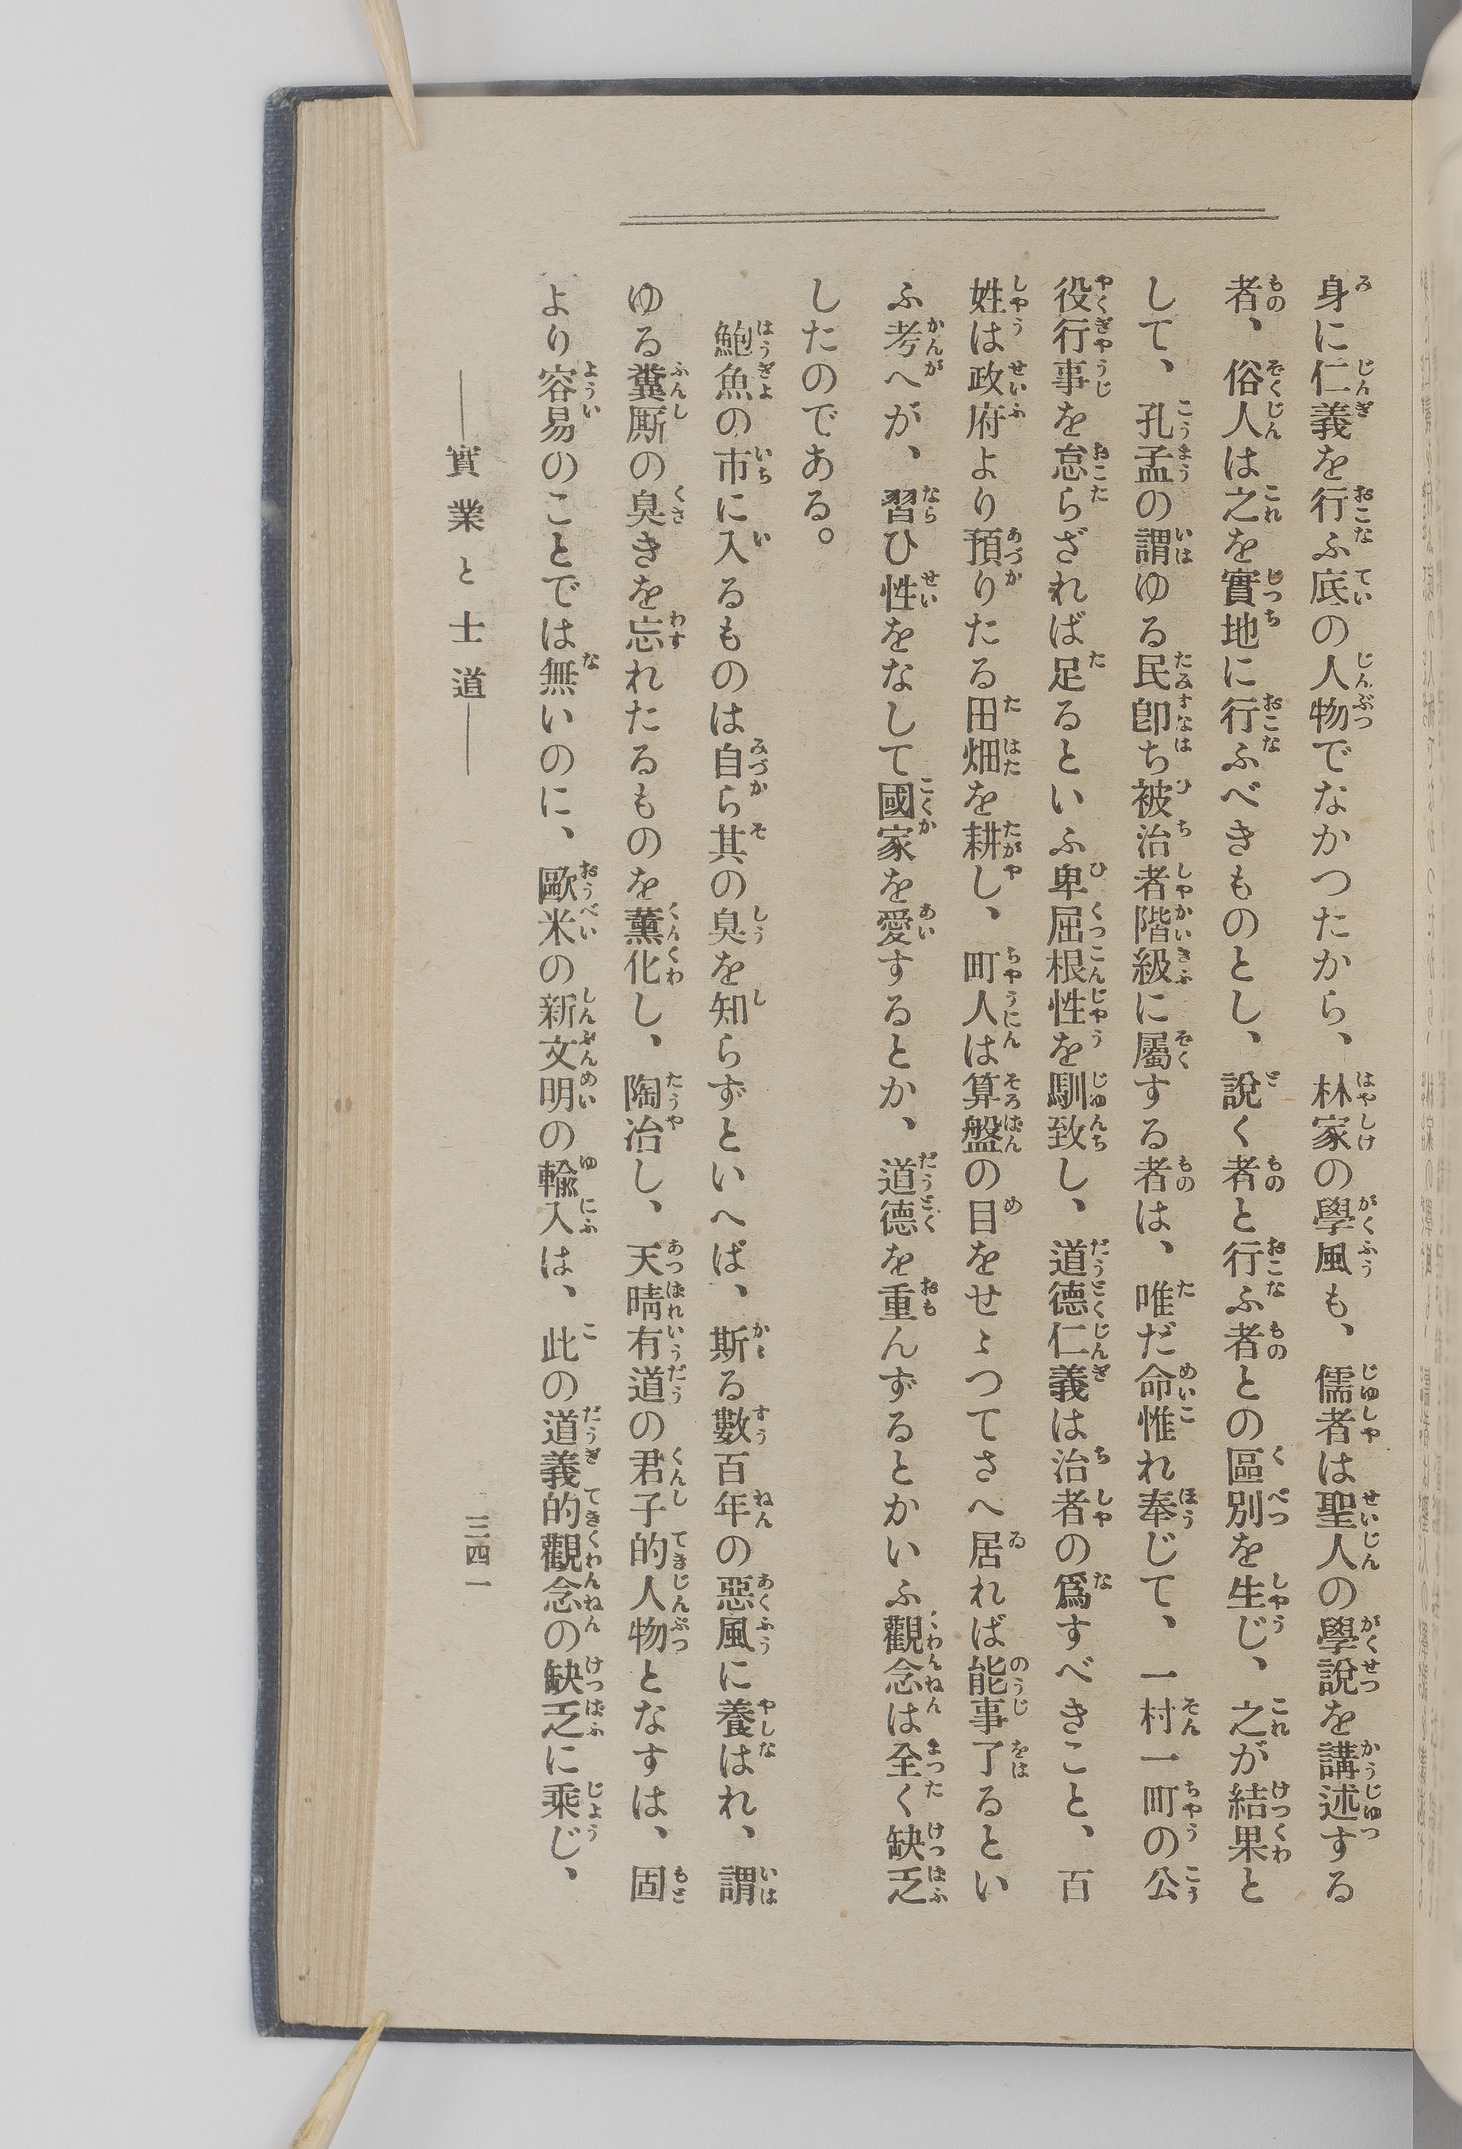 身に仁義を行ふ底の人物でなかつたから、林家の學風も、儒者は聖人の學説を講述する
者、俗人は之を實地に行ふべきものとし、説く者と行ふ者との區別を生じ、之が結果と
して、孔孟の謂ゆる民卽ち被治者階級に屬する者は、唯だ命惟れ奉じて、一村一町の公
役行事を怠らざれば足るといふ卑屈根性を馴致し、道德仁義は治者の爲すべきこと、百
姓は政府より預りたる田畑を耕し、町人は算盤の目をせゝつてさへ居れば能事了るとい
ふ考へが、習ひ性をなして國家を愛するとか、道德を重んずるとかいふ觀念は全く缺乏
したのである。
鮑魚の市に入るものは自ら其の臭を知らずといへば、斯る數百年の惡風に養はれ、謂
ゆる糞厮の臭きを忘れたるものを薰化し、陶冶し、天晴有道の君子的人物となすは、固
より容易のことでは無いのに、歐米の新文明の輸入は、此の道義的觀念の缺乏に乘じ、
――實業と士道――
三四一